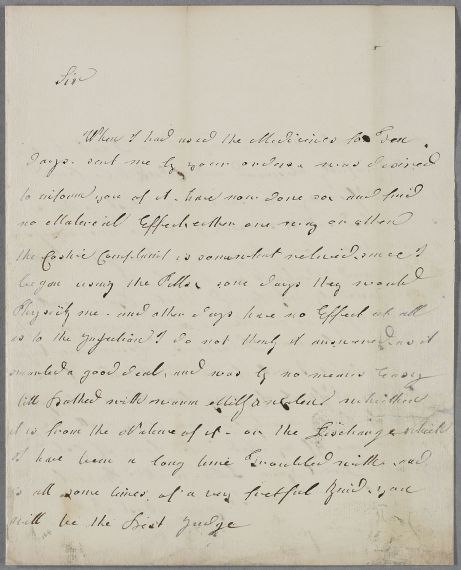 Sir
When I had used the Medicines for Ten
days sent me by your orders. was desired
to inform you of it. have now done so and find
no Material Effect either one way or other
the Costive Complaint is somewhat relieved since I
began using the Pills, some days they would
Physick me. and other days have no Effect at all
as to the Injection I do not think it answered as it
smarted a good deal, and was by no means easey
till Bathed with warm Milk &
it is from the Nature of it - or the Discharge which
I have been a long time Troubled with and
is all some times of a very fretfull kind. you
will be the Best Judge